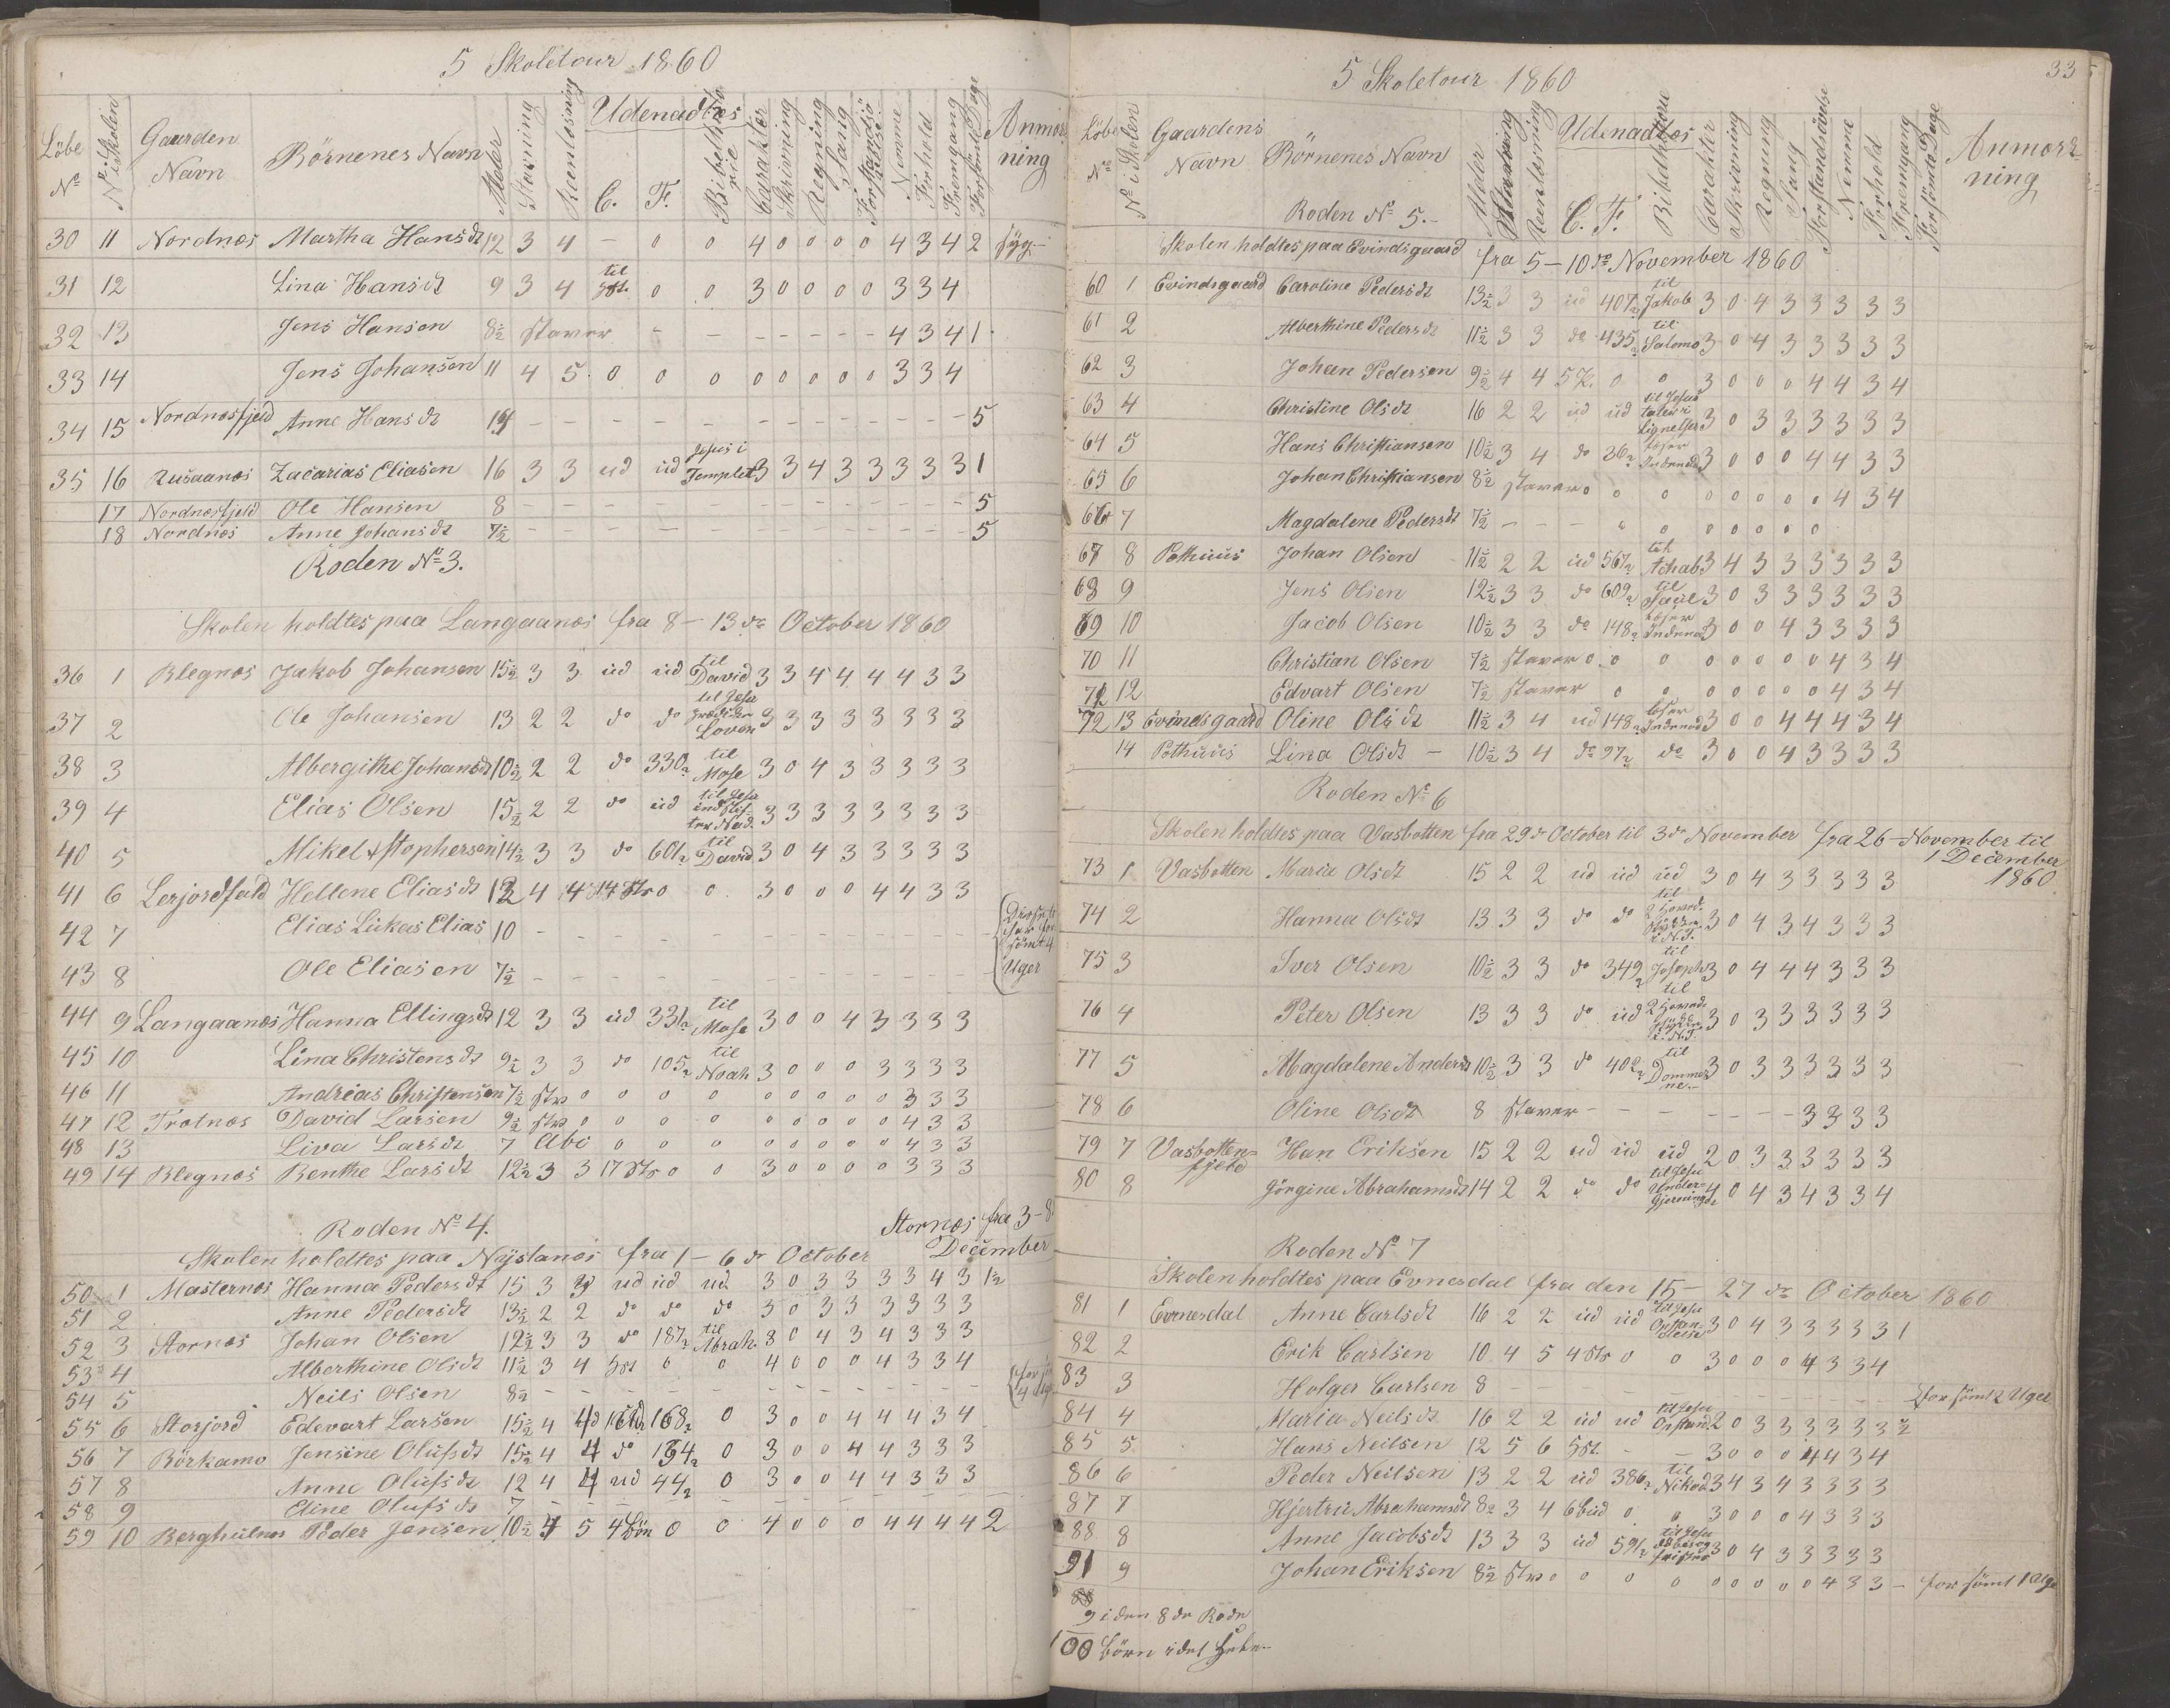 5 Skoletour 1860
Löbe No | No i Skolen | Gaarden Navn | Börnenes Navn | Alder | Stavning | Reenlæsning | Udenadlæs C. F. Bibelhistorie | Carakter | Skrivning | Regning | Sang | Forstandsö | Nemme | Forhold | Fremgang | Forsömte Dage | Anmærkning
30 11 Nordnæs Martha Hansdt 12 3 4 – 0 0 4 0 0 0 0 4 3 4 2 syg
31 12 Lina Hansdt 9 3 4 til 0 0 3 0 0 0 0 3 3 4
32 13 Jens Hansen 8½ staver – – – – – – – 4 3 4 1
33 14 Jens Johansen 11 4 5 0 0 0 0 0 0 0 0 3 3 4
34 15 Nordnæsfjeld Anne Hansdt – – – – – – – – – – – – 5
35 16 Rusaanæs Zacarias Eliasen 16 3 3 ud ud Jesus i Templet 3 3 4 3 3 3 3 3 1
17 Nordnæsfjeld Ole Hansen 8 – – – – – – – – – 5
18 Nordnæs Anne Johansdt 7½ – – – – 5
Roden No 3.
Skolen holdtes paa Langaanæs fra 8 – 13de October 1860
36 1 Blegnæs Jakob Johansen 15½ 3 3 ud ud til David 3 3 4 4 4 4 3 3
37 2 Ole Johansen 13 2 2 do do til Jesu Loven 3 3 3 3 3 3 3 3
38 3 Albergithe Johansdt 10½ 2 2 do 330 til Mose 3 0 4 3 3 3 3 3
39 4 Elias Olsen 15½ 2 2 do ud til Jesu indstifter Nad. 3 3 3 3 3 3 3 3
40 5 Mikel Kstophersen 14½ 3 3 do 601 til David 3 0 4 3 3 3 3 3
41 6 Lerjordfald Hellene Eliasdt 12 4 4 14 Str 0 0 3 0 0 0 4 4 3 3
42 7 Elias Lukas Elias 10 – – – – – – – – – –
43 8 Ole Eliasen 7½ – – – – – – – – – Uger
44 9 Langaanæs Hanna Ellingsdt 12 3 3 ud 331 til Mose 3 0 0 4 3 3 3 3
45 10 Lina Christensdt 9½ 3 3 do 105 til Noah 3 0 0 0 3 3 3 3
46 11 Andreas Christensen 7½ stv 0 0 0 0 0 0 0 0 0 3 3 3
47 12 Trotnæs David Larsen 9½ stv 0 0 0 0 0 0 0 0 0 4 3 3
48 13 Liva Larsdt 7 Abc 0 0 0 0 0 0 0 0 4 3 3
49 14 Blegnæs Benthe Larsdt 12½ 3 3 17 Str 0 0 3 0 0 0 0 3 3 3
Roden No 4. Stornæs fra 3–8
Skolen holdtes paa Nystanæs fra 1 – 6 de October December
50 1 Masternæs Hanna Pedersdt 15 3 3 ud ud ud 3 0 3 3 3 3 4 3 1½
51 2 Anne Pedersdt 13½ 2 2 do do do 3 0 3 3 3 3 3 3
52 3 Stornæs Johan Olsen 12½ 3 3 do 187 til Abrah. 3 0 4 3 4 3 3 3
53 4 Alberthine Olsdt 11½ 3 4 5st 0 0 4 0 0 0 4 3 3 4
54 5 Neils Olsen 8½ – – – – – – – – – – – –
55 6 Storjord Edevart Larsen 15½ 4 4 168 0 3 0 0 4 4 4 3 4
56 7 Börkamo Jensine Olufsdt 15½ 4 4 do 134 0 3 0 0 4 4 3 3 3
57 8 Anne Olufsdt 12 4 4 ud 44 0 3 0 0 4 4 3 3 3
58 9 Eline Olufsdt 7 – – – – – – – – – –
59 10 Berghulnæs Peder Jensen 10½ 4 5 4 Bön 0 0 4 0 0 0 4 4 4 4 2
33
5 Skoletour 1860
Löbe No | No i Skolen | Gaardens Navn | Börnenes Navn | Alder | Stavning | Reenlæsning | Udenadlæs C. F. Bibelhistorie | Carakter | Skrivning | Regning | Sang | Forstandsövelse | Nemme | Forhold | Fremgang | Forsömte Dage | Anmærkning
Roden No 5.
Skolen holdtes paa Evindsgaard fra 5 – 10de November 1860
60 1 Evindsgaard Caroline Pedersdt 13½ 3 3 ud 407 til Jakob 3 0 4 3 3 3 3 3
61 2 Alberthine Pedersdt 11½ 3 3 do 435 til Salomo 3 0 4 3 3 3 3 3
62 3 Johan Pedersen 9½ 4 4 5 0 0 3 0 0 0 4 4 3 4
63 4 Christine Olsdt 16 2 2 ud ud til Jesus taler i Lignelser 3 0 3 3 3 3 3 3
64 5 Hans Christiansen 10½ 3 4 do 36 læser Indenad 3 0 0 0 4 4 3 3
65 6 Johan Christiansen 8½ staver 0 0 0 0 0 0 0 0 4 3 4
66 7 Magdalene Pedersdt 7½ – – – 0 0 0 0 0 0 0
67 8 Pothuus Johan Olsen 11½ 2 2 ud 567 til Achab 3 4 3 3 3 3 3 3
68 9 Jens Olsen 12½ 3 3 do 609 til Saul 3 0 3 3 3 3 3 3
69 10 Jacob Olsen 10½ 3 3 do 148 læser Indenad 3 0 0 4 3 3 3 3
70 11 Christian Olsen 7½ staver 0 0 0 0 0 0 0 0 4 3 4
71 12 Edvart Olsen 7½ staver 0 0 0 0 0 0 0 4 3 4
72 13 Evindsgaard Oline Olsdt 11½ 3 4 ud 148 læser Indenad 3 0 0 4 4 4 3 4
14 Pothuus Lina Olsdt – 10½ 3 4 do 97 do 3 0 0 4 3 3 3 3
Roden No 6
Skolen holdtes paa Vasbotten fra 29de October til 3de November fra 26 – November til 1 December 1860
73 1 Vasbotten Maria Olsdt 15 2 2 ud ud ud 3 0 4 3 3 3 3 3
74 2 Hanna Olsdt 13 3 3 do do til 2 Hoved. 3 0 4 3 4 3 3 3
75 3 Iver Olsen 10½ 3 3 do 349 til Joseph 3 0 4 4 4 3 3 3
76 4 Peter Olsen 13 3 3 do ud til 2 Hoved. 3 0 3 3 3 3 3 3
77 5 Magdalene Andersdt 10½ 3 3 do 402 til Dommerne 3 0 3 3 3 3 3 3
78 6 Oline Olsdt 8 staver – – – – – – – 3 3 3 3
79 7 Vasbottenfjeld Han Eriksen 15 2 2 ud ud ud 2 0 3 3 3 3 3 3
80 8 Görgine Abrahamsdt 14 2 2 do do til Jesu Undergjerning 4 0 4 3 4 3 3 4
Roden No 7
Skolen holdtes paa Evnesdal fra den 15 – 27de October 1860
81 1 Evnesdal Anne Carlsdt 16 2 2 ud ud til Jesu Opstandelse 3 0 4 3 3 3 3 3 1
82 2 Erik Carlsen 10 4 5 4 Str 0 0 3 0 0 0 4 3 3 4
83 3 Holger Carlsen 8 – – – – – – – forsömt 2 Uger
84 4 Maria Neilsdt 16 2 2 ud ud til Jesu Opstand 2 0 3 3 3 3 3 3 ½
85 5 Hans Neilsen 12 5 6 5st – – 3 0 0 0 4 4 3 4
86 6 Peder Neilsen 13 2 2 ud 386 til Nikod 3 4 3 4 3 3 3 3
87 7 Hjertru Abrahamsdt 8½ 3 4 6 bud 0 0 3 0 0 0 4 3 3 3
88 8 Anne Jacobsdt 13 3 3 ud 591 til Jesu 3 0 4 3 3 3 3 3
91 9 Johan Eriksen 8½ stv 0 0 0 0 0 0 0 0 0 4 3 3 – forsömt 1 Uge
88
9 i den 8de Rode
100 börn i det Hele